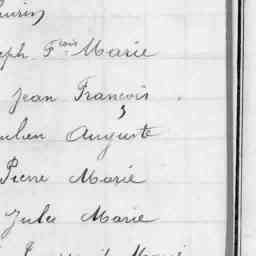 eph Fcois Marie
Jean François
ulien Auguste
Pierre Marie
Jules Marie